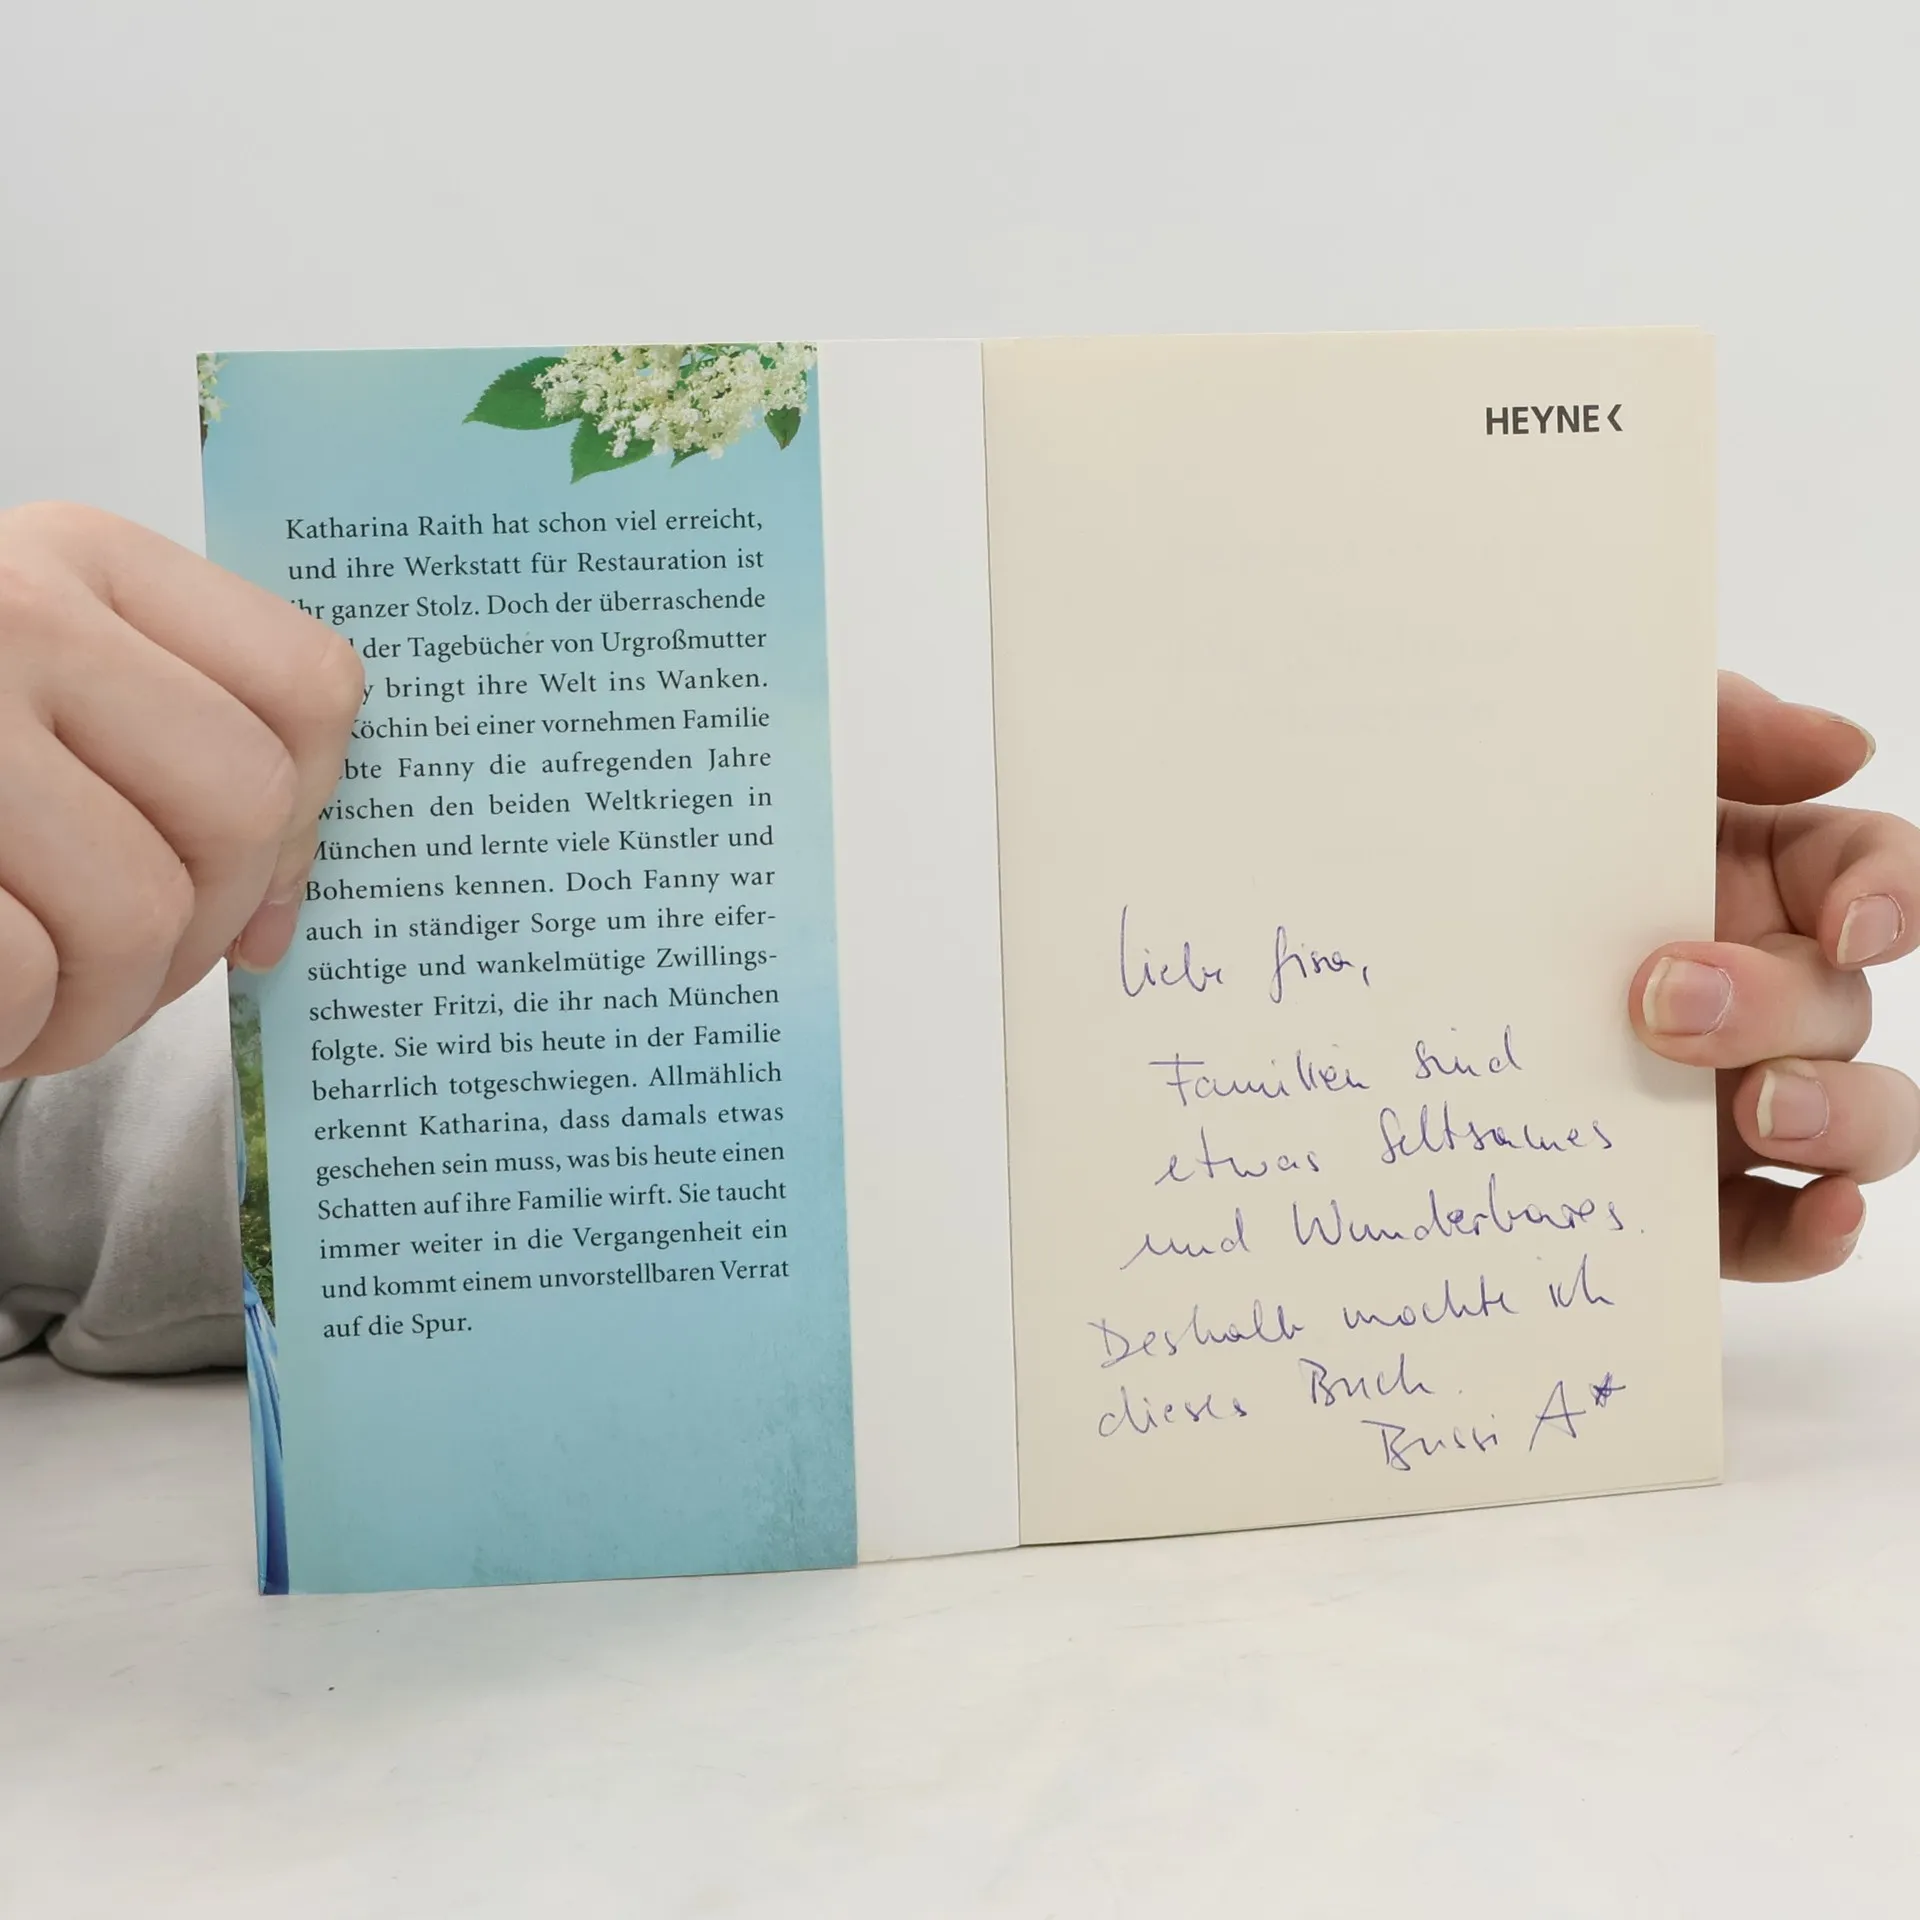 Katharina Raith hat schon viel erreicht,
und ihre Werkstatt für Restauration ist
ihr ganzer Stolz. Doch der überraschende
der Tagebücher von Urgroßmutter
bringt ihre Welt ins Wanken.
Köchin bei einer vornehmen Familie
Fanny die aufregenden Jahre
zwischen den beiden Weltkriegen in
München und lernte viele Künstler und
Bohemiens kennen. Doch Fanny war
auch in ständiger Sorge um ihre eifer-
süchtige und wankelmütige Zwillings-
schwester Fritzi, die ihr nach München
folgte. Sie wird bis heute in der Familie
beharrlich totgeschwiegen. Allmählich
erkennt Katharina, dass damals etwas
geschehen sein muss, was bis heute einen
Schatten auf ihre Familie wirft. Sie taucht
immer weiter in die Vergangenheit ein
und kommt einem unvorstellbaren Verrat
auf die Spur.
HEYNE<
Liebe
Familien sind
etwas Seltsames
und Wunderbares.
Deshalb mochte ich
dieses Buch.
Bussi A*